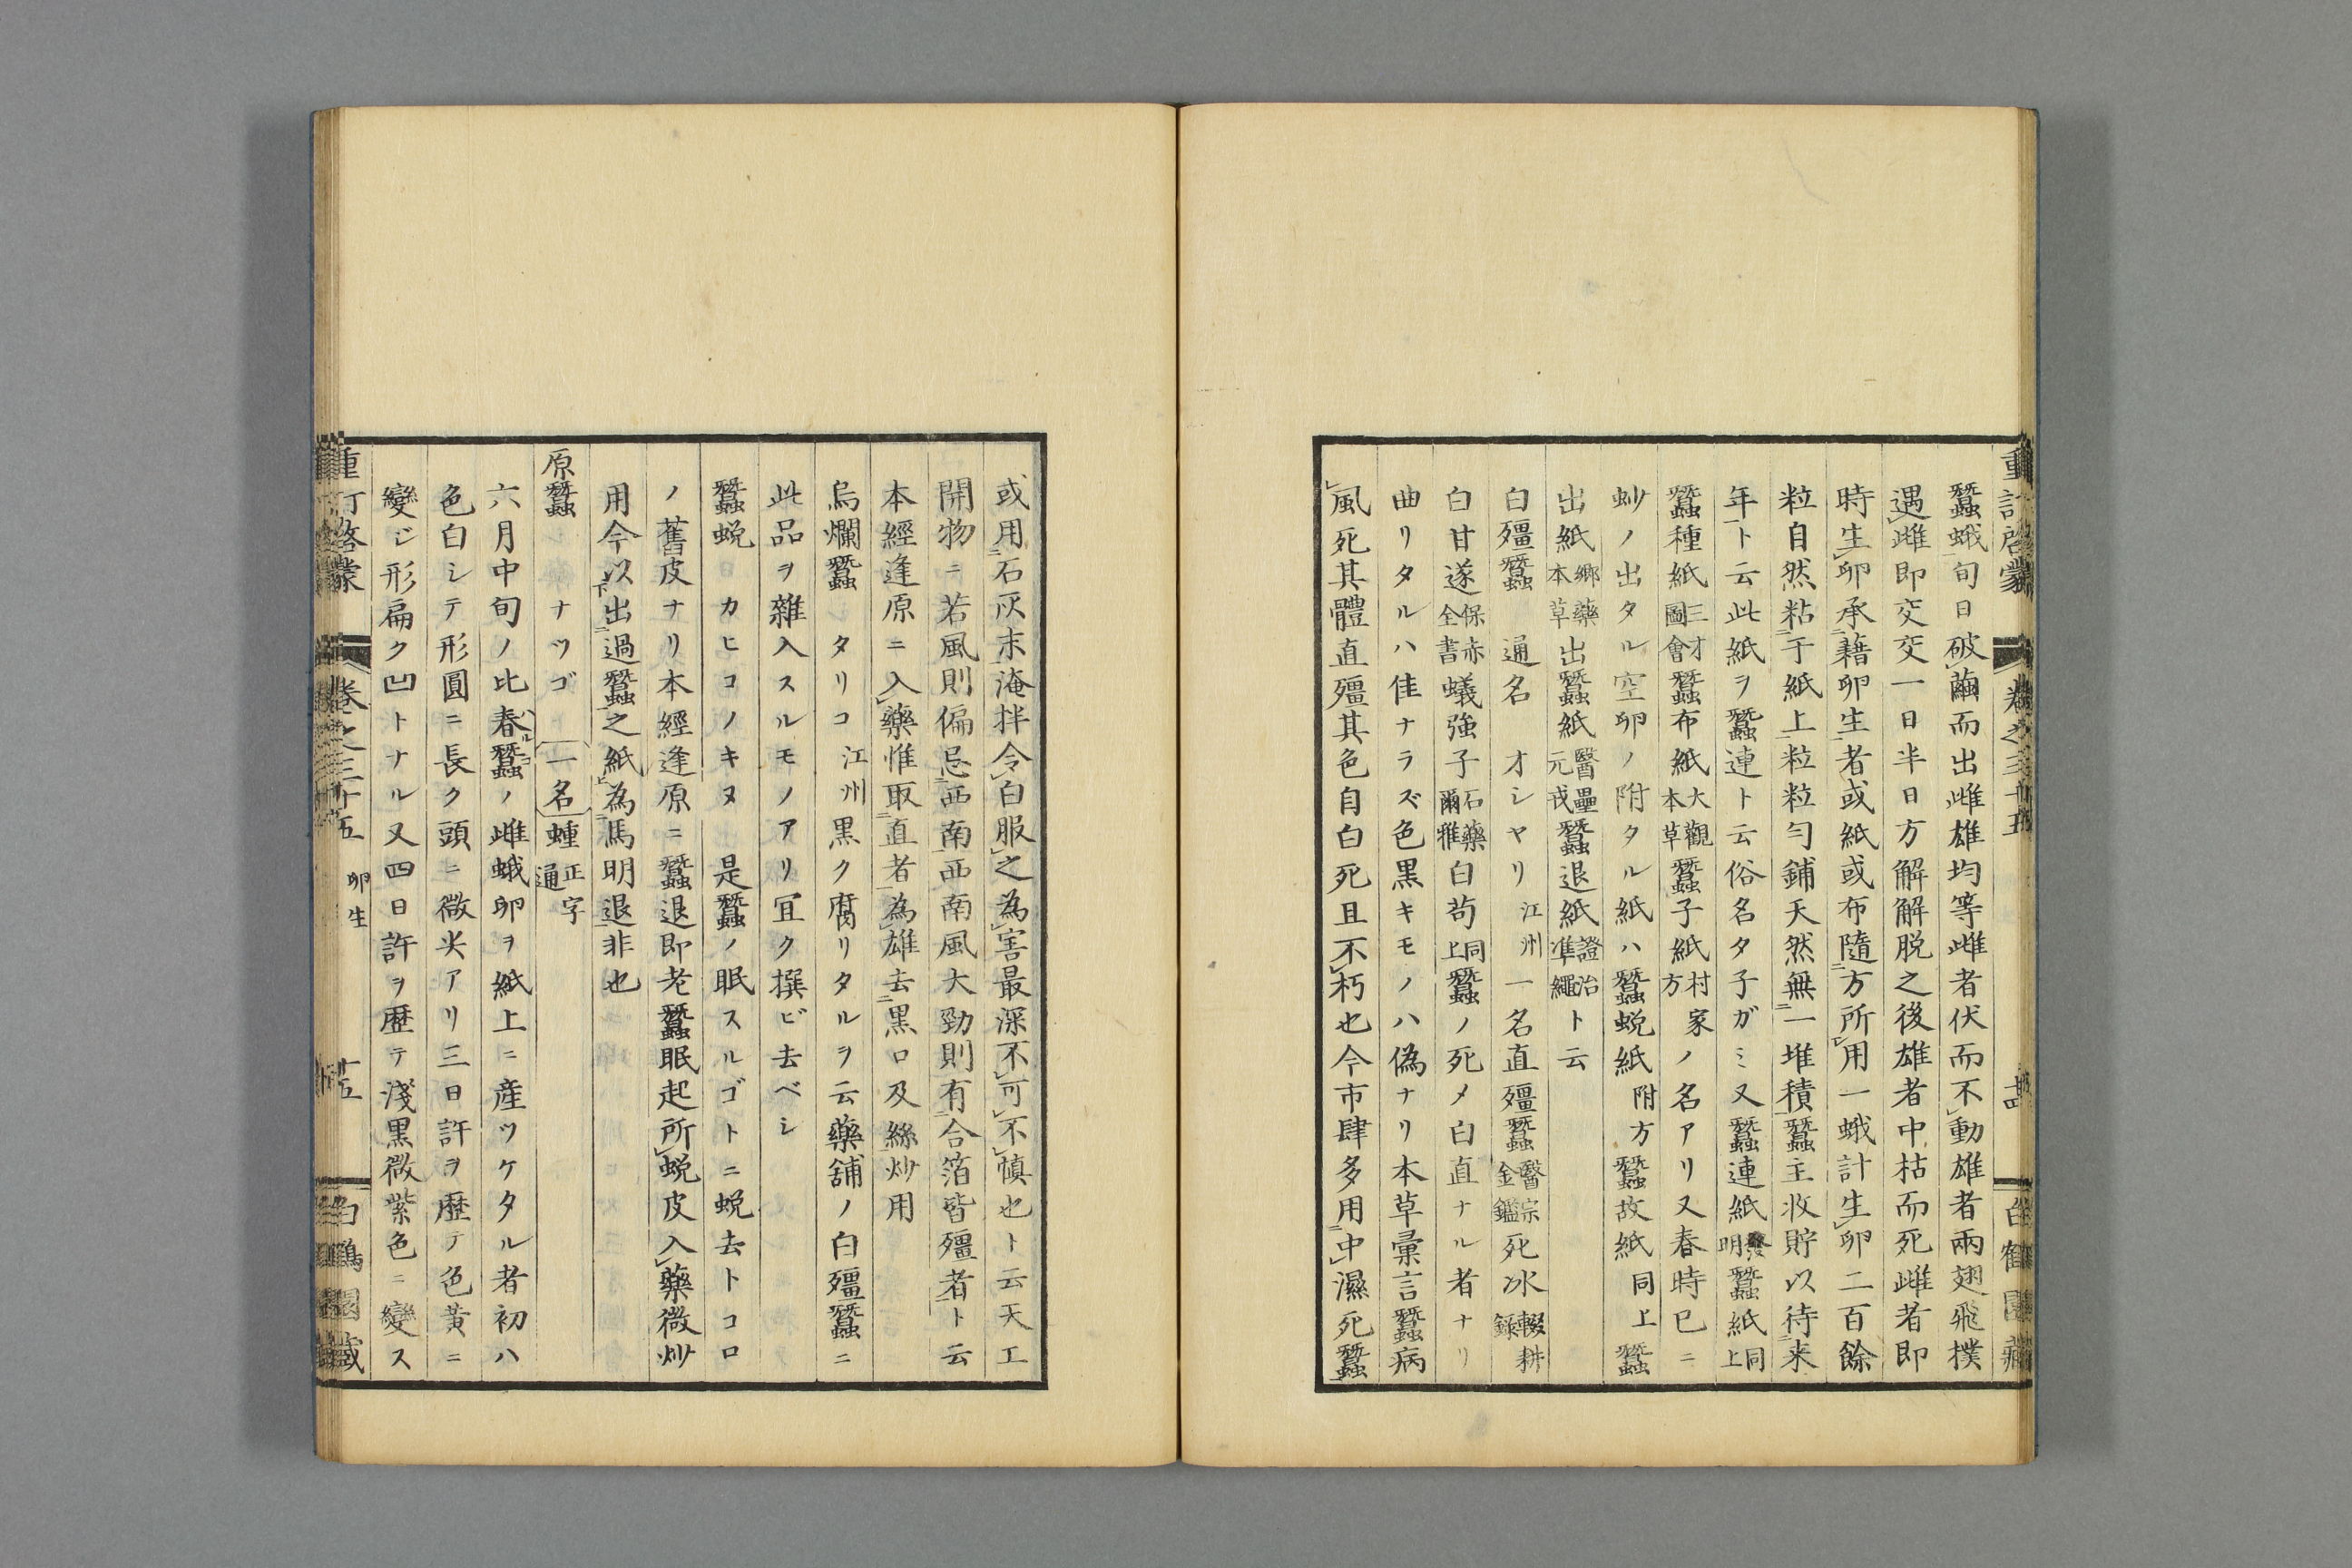 重訂啓蒙 卷之三十五 廿四
蠶蛾旬日破繭而出雌雄均等雌者伏而不動雄者兩翅飛撲
遇雌即交交一日半日方解解脱之後雄者中枯而死雌者即
時生卵承藉卵生者或紙或布隨方所用一蛾計生卵二百餘
粒自然粘于紙上粒粒勻鋪天然無一堆積蠶主收貯以待来
年ト云此紙ヲ蠶連ト云俗名タ子ガミ又蠶連紙發明蠶紙同上
蠶種紙三才圖會蠶布紙大觀本草蠶子紙村家方ノ名アリ又春時已ニ
𧊅ノ出タル空卵ノ附タル紙ハ蠶蛻紙附方蠶故紙同上蠶
出紙郷藥本草出蠶紙醫壘元戎蠶退紙證治準繩ト云
白殭蠶 通名 オシヤリ江州 一名直殭蠶醫宗金鑑死冰輟耕錄
白甘遂保赤全書蟻強子石藥爾雅白苟同上蠶ノ死メ白直ナル者ナリ
曲リタルハ佳ナラズ色黒キモノハ偽ナリ本草彙言蠶病
風死其體直殭其色自白死且不朽也今市肆多用中濕死蠶
或用石灰末淹拌令白服之為害最深不可不慎也ト云天工
開物ニ若風則偏忌西南西南風大勁則有合箔皆殭者ト云
本經逢原ニ入藥惟取直者為雄去黒口及絲炒用
烏爛蠶 シタリコ江州 黒ク腐リタルヲ云藥舗ノ白殭蠶ニ
此品ヲ雜入スルモノアリ宜ク撰ビ去ベシ
蠶蛻 カヒコノキヌ 是蠶ノ眠スルゴトニ蛻去トコロ
ノ舊皮ナリ本經逢原ニ蠶退即老蠶眠起所蛻皮入藥微炒
用今以出過蠶之紙為馬明退非也
原蠶 ナツゴ 一名 蝩正字通
六月中旬ノ比春蠶ノ雌蛾卵ヲ紙上ニ産ツケタル者初ハ
色白シテ形圓ニ長ク頭ニ微尖アリ三日許ヲ歴テ色黃ニ
變ジ形扁ク凹トナル又四日許ヲ歴テ淺黒微紫色ニ變ス
重訂啓蒙 卷之三十五 卵生 廿五